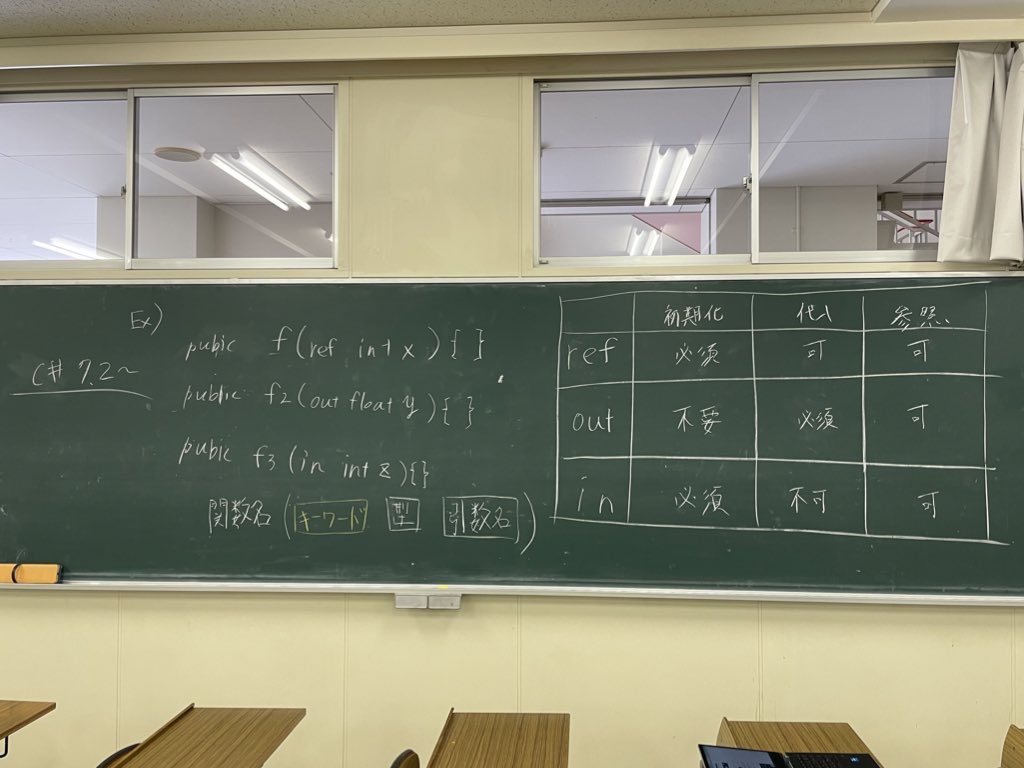 Ex)
C# 7.2～
pubic f(ref int x){ }
public f2(out float y){ }
pubic f3(in int z){}
関数名(キーワード 型 引数名)
初期化 代入 参照
ref 必須 可 可
out 不要 必須 可
in 必須 不可 可